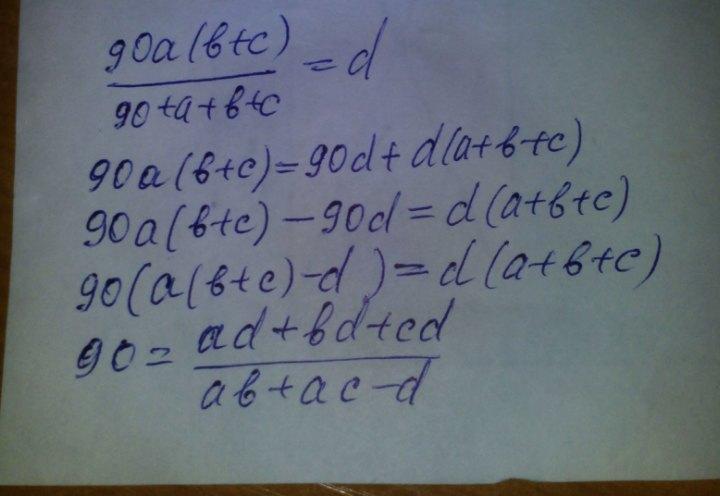 90a(в+c)/90+a+в+c = d
90a(в+c)=90d+d(a+в+c)
90a(в+c)-90d=d(a+в+c)
90(a(в+c)-d)=d(a+в+c)
90=ad+вd+cd/aв+ac-d